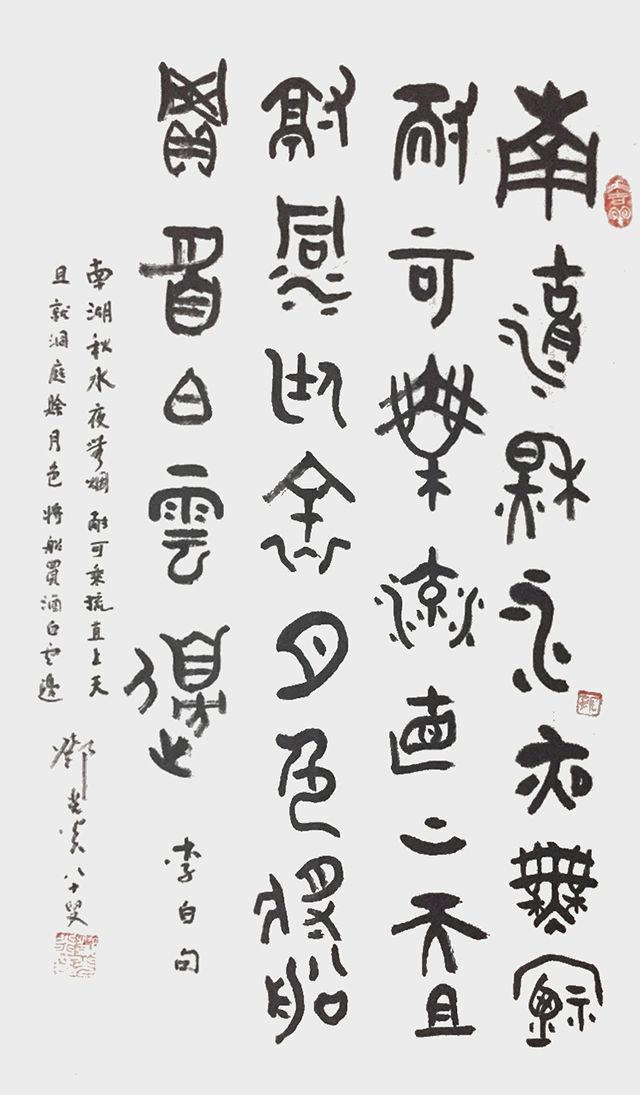 南湖秋水夜無煙
耐可乘流直上天且
就洞庭賒月色將船
買酒白雲邊 李白句
南湖秋水夜無烟 耐可乘流直上天
且就洞庭賒月色 將船買酒白雲邊
鄧 八十叟